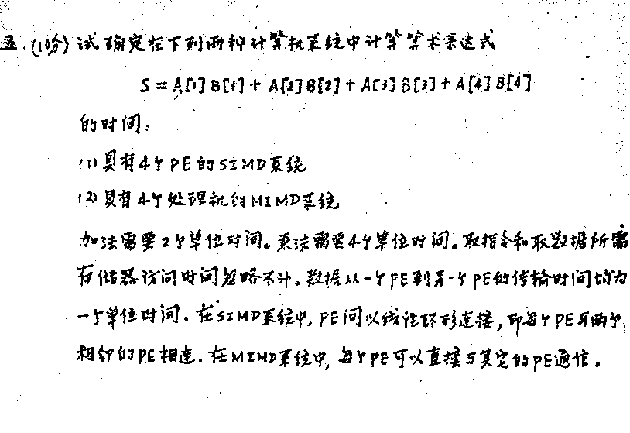 五.(1分)试确定在下列两种计算机系统中计算算术表达式
S=A[1]B[1]+A[2]B[2]+A[3]B[3]+A[4]B[4]
的时间:
(1)具有4个PE的SIMD系统
(2)具有4个处理机的MIMD系统
加法需要2个单位时间。乘法需要4个单位时间。取指令和取数据所需
存储器访问时间忽略不计。数据从一个PE到另一个PE的传输时间均为
一个单位时间。在SIMD系统中,PE间以线性环形连接,即每个PE与两个
相邻的PE相连。在MIMD系统中,每个PE可以直接与其它的PE通信。